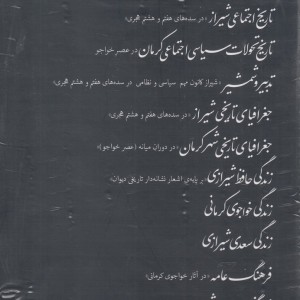 تاریخ اجتماعی شیراز «در سده‌های هفتم و هشتم هجری»
تاریخ تحولات سیاسی اجتماعی کرمان در عصر خواجو
تدبیر و شمشیر «شیراز کانون مهم سیاسی و نظامی در سده‌های هفتم و هشتم هجری»
جغرافیای تاریخی شیراز «در سده‌های هفتم و هشتم هجری»
جغرافیای تاریخی شهر کرمان «در دوران میانه (عصر خواجو)»
زندگی حافظ شیرازی «بر پایه‌ی اشعار نشانه‌دار تاریخی دیوان»
زندگی خواجوی کرمانی
زندگی سعدی شیرازی
فرهنگ عامه «در آثار خواجوی کرمانی»